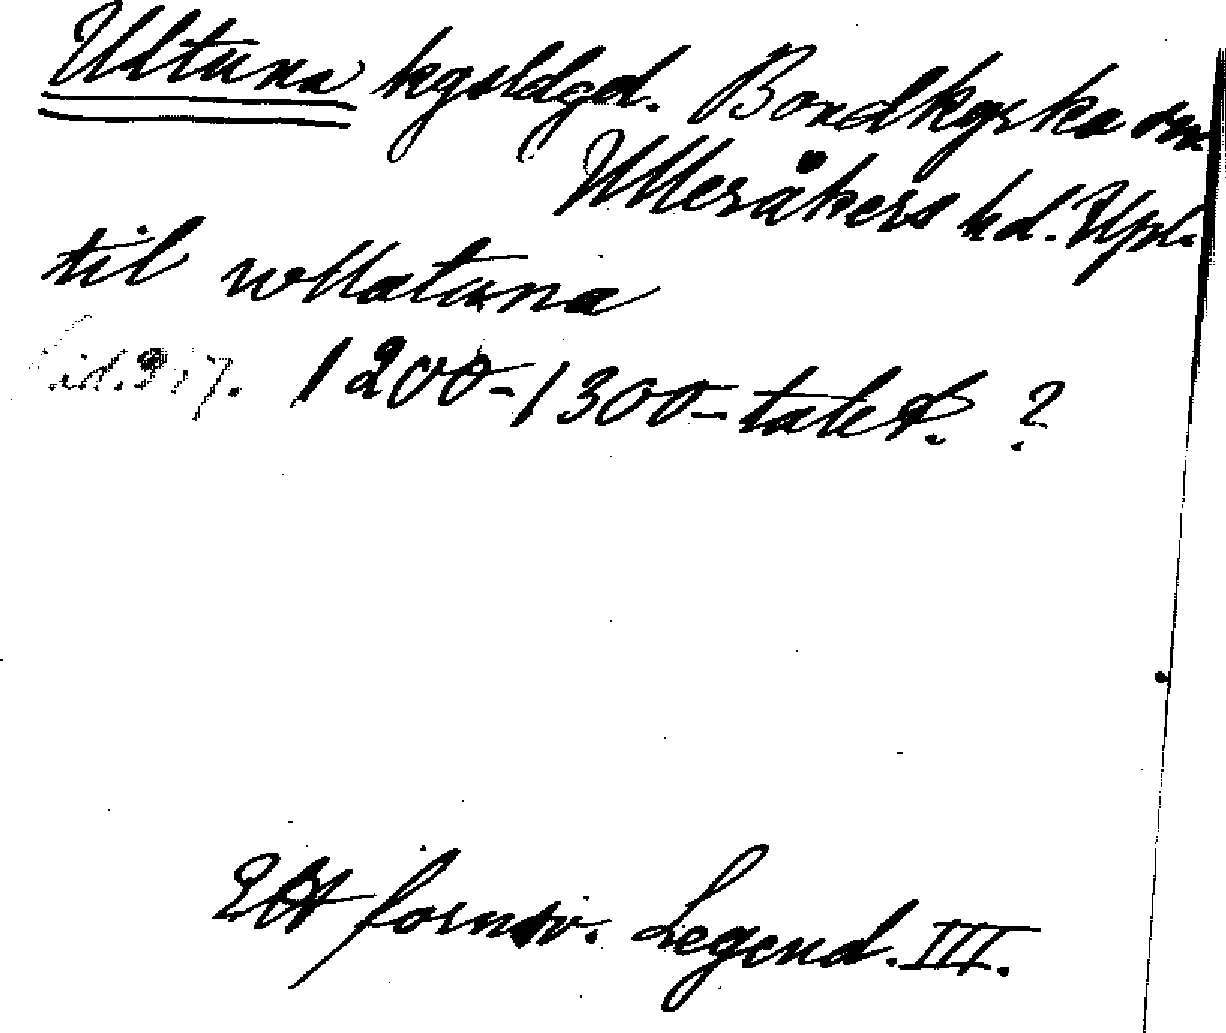 Ultuna kgsldgd. Bondkyrka sn.
Ulleråkers hd. Upl.
til wllatuna
sid. 917. 1200-1300-talet. ?
Ett fornsv. Legend. III.